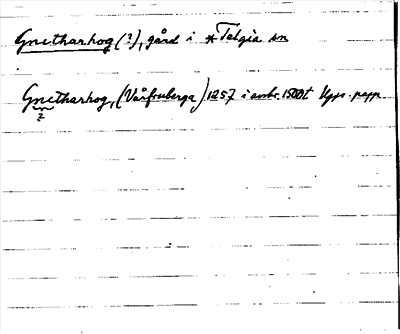 Gnetharhog (?), gård i *Telgia sn
Gnetharhog, (Vårfruberga) 1257 i avskr. 1500t Upps. papp.
?